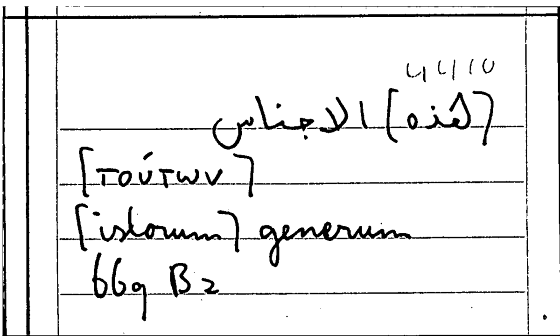 4410
[هذه] الاجناس
[τούτων]
[istorum] generum
669 B2